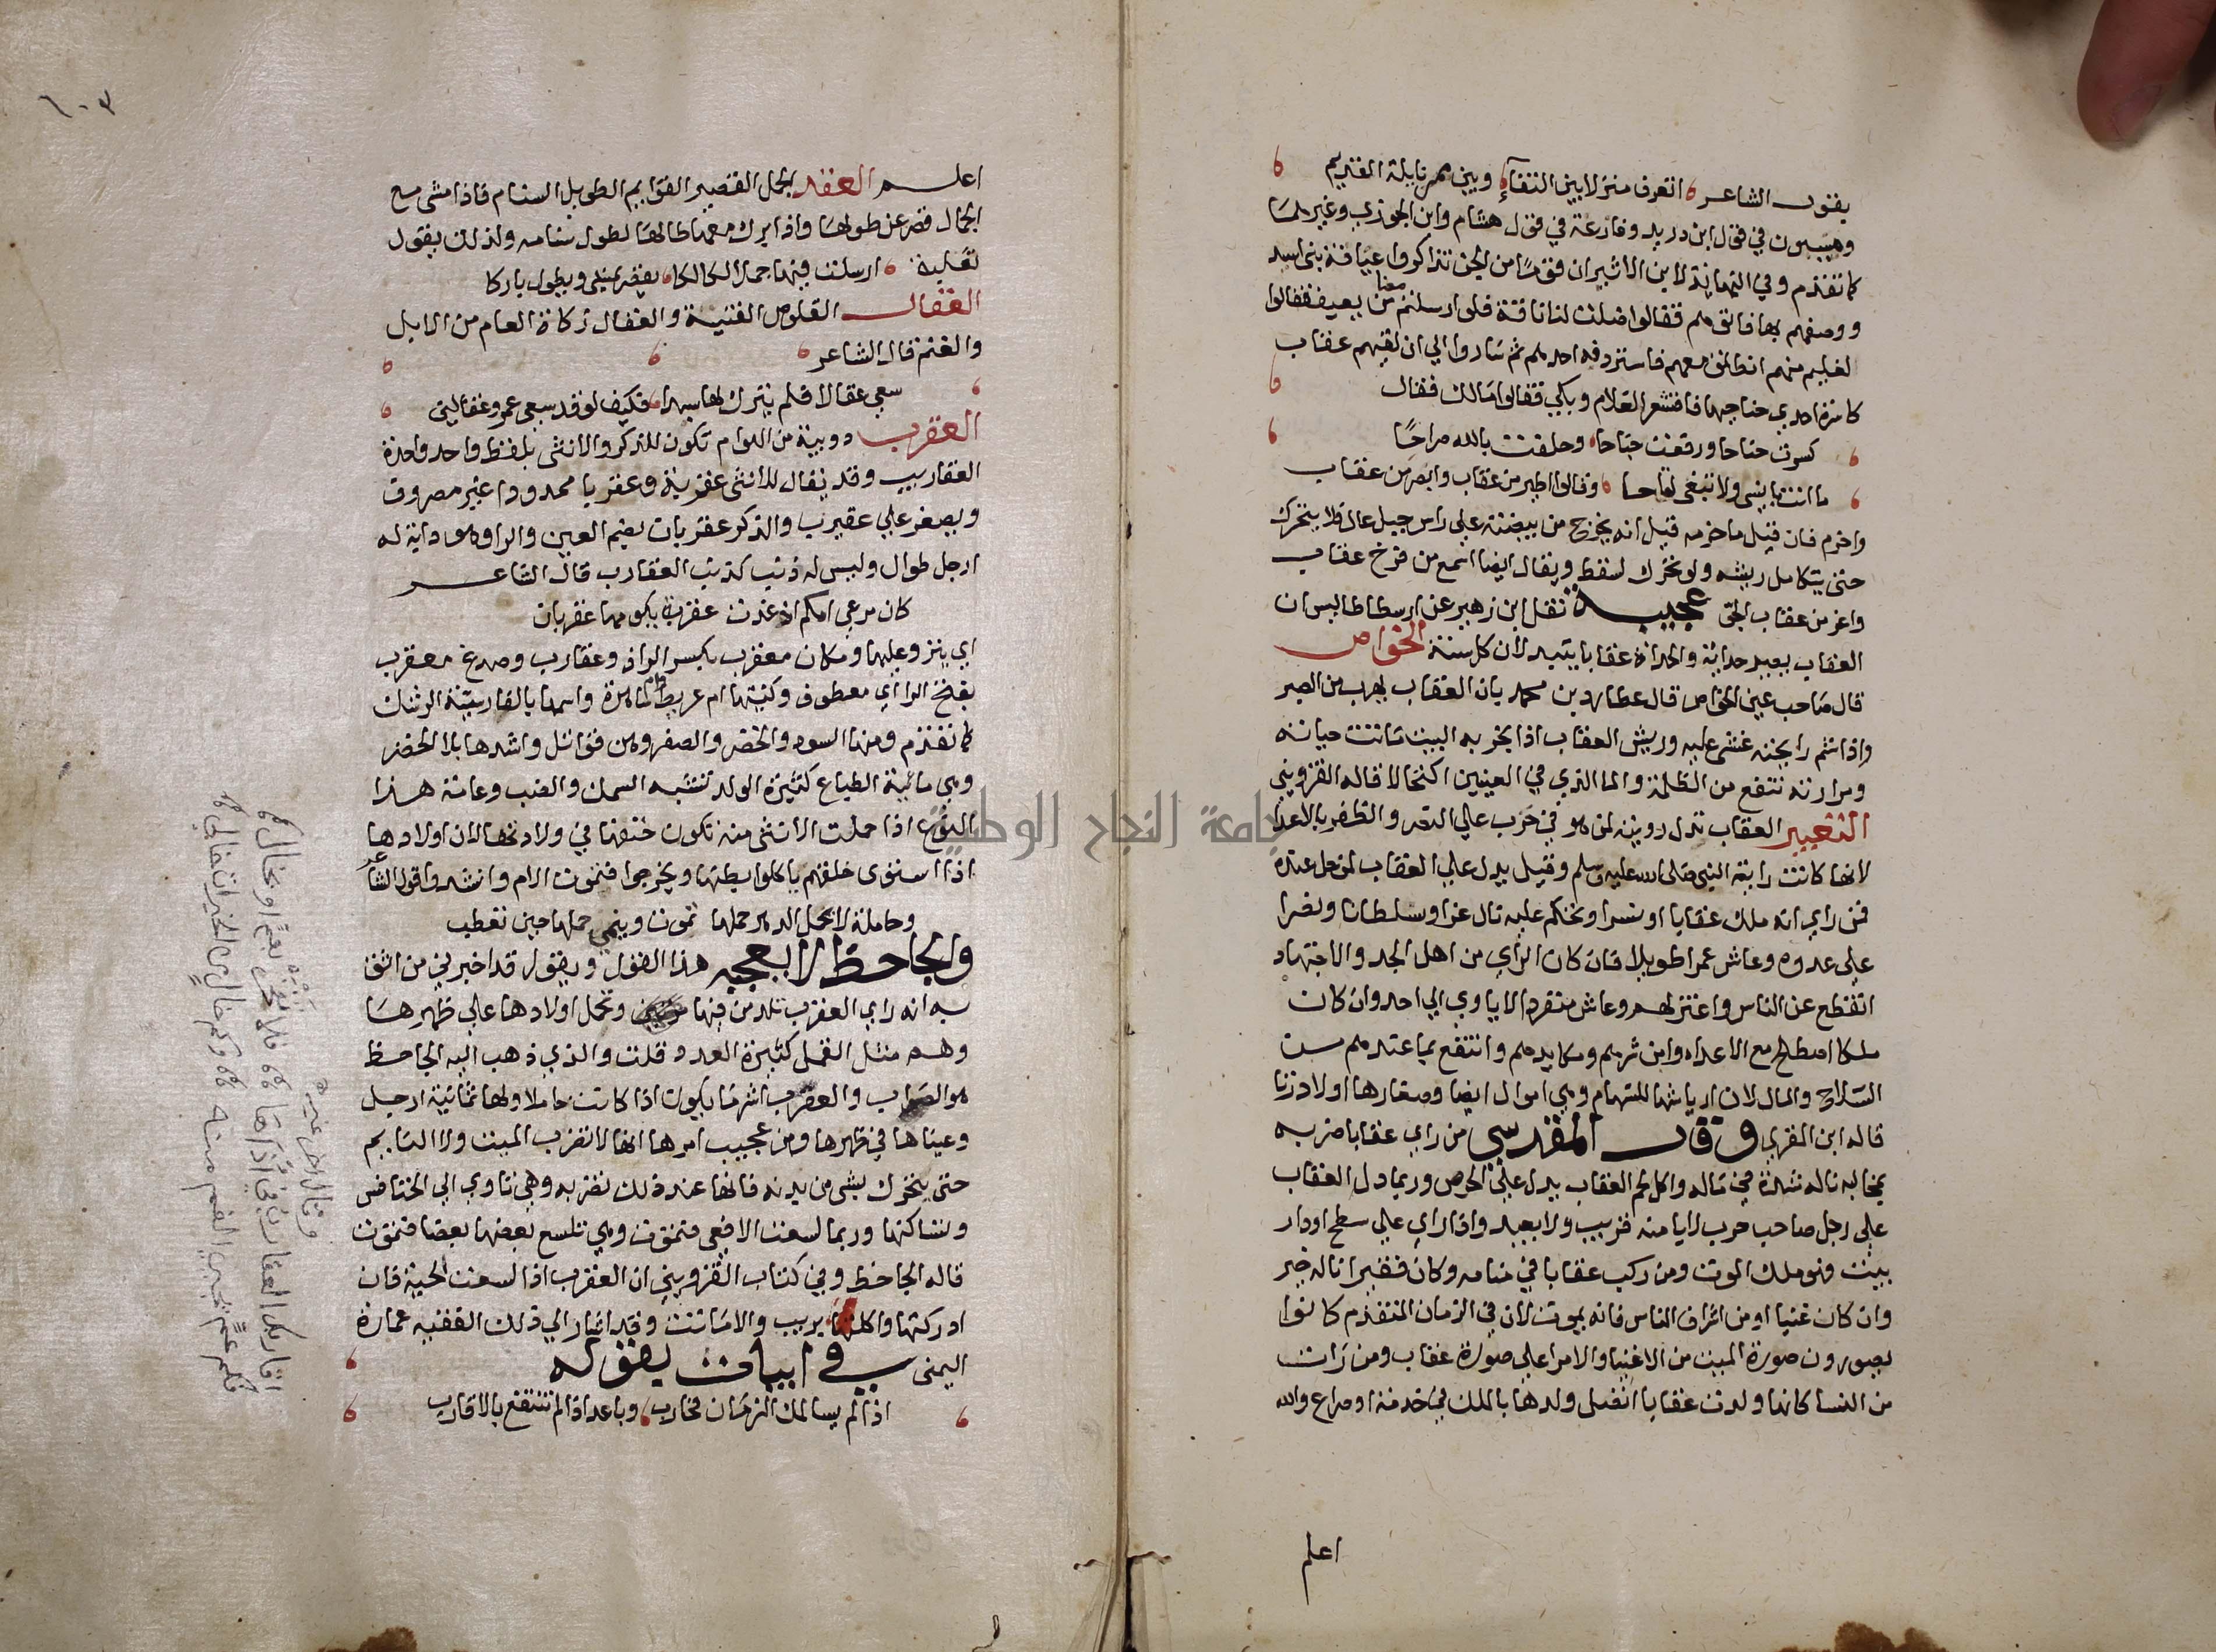 يقول الشاعر اتعرف منزلا بين النقاء وبين ممر نايلة القديم
وهيبون في قول ابن دريد وقارعة في قول هشام وابن الجوزي وغيرهما
كما تقدم وفي النهاية لابن الاثير ان قوما من الجن تذاكروا عيافة بني اسد
ووصفهم بها فاتوهم فقالوا ضلت لنا ناقة فلو ارسلتم معنا من يعيف فقالوا
لغليم منهم انطلق معهم فاستردفه احدهم ثم ساروا الي ان لقيهم عقاب
كاسرة احدي جناحيها فاقشعر الغلام وبكي فقالوا مالك فقال
كسرت جناحا ورفعت جناحا وحلفت بالله صراحا
ما انت بانسي ولا تبغي لقاحا وقالوا اطير من عقاب وابصر من عقاب
واحزم فان قيل ما حزمه قيل انه يخرج من بيضته علي راس جبل عال فلا يتحرك
حتى يتكامل ريشه ولو تحرك لسقط ويقال ايضا اسمع من فرخ عقاب
واعز من عقاب الجو عجيبة نقل ابن زهير عن ارسطاطاليس ان
العقاب يصير حداية والحداة عقابا يتبدلان كل سنة الخواص
قال صاحب عين الخواص قال عطارد بن محمد بان العقاب يهرب من الصبر
واذا شم رايحته غشي عليه وريش العقاب اذا بخر به البيت ماتت حياته
ومرارته تنفع من الظلمة والما الذي في العينين اكتحالا قاله القزويني
التعبير العقاب تدل رويته لمن هو في حرب علي النصر والظفر بالاعدا
لانها كانت راية النبي صلى الله عليه وسلم وقيل يدل علي العقاب لمن حل عنده
فمن راي انه ملك عقابا او نسرا وتحكم عليه نال عزا وسلطانا ونصرا
علي عدوه وعاش عمرا طويلا فان كان الراي من اهل الجد والاجتهاد
انقطع عن الناس واعتزلهم وعاش منفردا لا ياوي الي احد وان كان
ملكا اصطلح مع الاعداء وامن شرهم ومكايدهم وانتفع بما عندهم من
السلاح والمال لان ارياشها للسهام وهي اموال ايضا وصغارها اولاد زنا
قاله ابن المقري وقال المقدسي من راي عقابا ضربه
بمخالبه ناله شدة في ماله واكل لحم العقاب يدل علي الحرص وربما دل العقاب
علي رجل صاحب حرب لا يامنه قريب ولا بعيد واذا راي علي سطح او دار
بيت فهو ملك الموت ومن ركب عقابا في منامه وكان فقيرا ناله خير
وان كان غنيا او من اشراف الناس فانه يموت لان في الزمان المتقدم كانوا
يصورون صورة الميت من الاغنيا والامرا علي صورة عقاب ومن رات
من النسا كانها ولدت عقابا اتصل ولدها بالملك في خدمة او صراع والله
اعلم
اعلم العقد الجمل القصير القوايم الطويل السنام فاذا مشى مع
الجمال قصر عن طولها واذا برك معها طالها لطول سنامه ولذلك يقول
ثعلبة ارسلت فيها جملا لكالكا يقصر يمشي ويطول باركا
العقال القلوص الفتية والعقال زكاة العام من الابل
والغنم قال الشاعر
سعي عقالا فلم يترك لها سبدا فكيف لو قد سعي عمرو عقالين
العقرب دويبة من الهوام تكون للذكر والانثى بلفظ واحد واحدة
العقارب وقد يقال للانثى عقربة وعقربا ممدودا غير مصروف
ويصغر علي عقيرب والذكر عقربان بضم العين والرا وهو دابة له
ارجل طوال وليس له ذنب كذنب العقارب قال الشاعر
كان مرعي امكم اذ غدت عقربة يكومها عقربان
اي ينزو عليها ومكان معقرب بكسر الرا ذو عقارب وصدغ معقرب
بفتح الرا اي معطوف وكنيتها ام عريط وام ساهرة واسمها بالفارسية الرشك
كما تقدم ومنها السود والخضر والصفر وهن قواتل واشدها بلا الخضر
وهي مائية الطباع كثيرة الولد تشبه السمك والضب وعامة هذا
النوع اذا حملت الانثى منه تكون حتفها في ولادتها لان اولادها
اذا استوى خلقهم ياكلوا بطنها ويخرجوا فتموت الام وانشدوا قول الشاعر
وحاملة لا يحمل الدهر حملها تموت وينمي حملها حين تعطب
والجاحظ لا يعجبه هذا القول ويقول قد اخبرني من اثق
به انه راي العقرب تلد من فيها وتحمل اولادها علي ظهرها
وهم مثل القمل كثيرة العدد قلت والذي ذهب اليه الجاحظ
هو الصواب والعقرب اشر ما يكون اذا كانت حاملا ولها ثمانية ارجل
وعيناها في ظهرها ومن عجيب امرها انها لا تضرب الميت ولا النايم
حتى يتحرك بشي من بدنه فانها عند ذلك تضربه وهي تاوي الي الخنافس
وتساكنها وربما لسعت الافعي فتموت وهي تلسع بعضها بعضا فتموت
قاله الجاحظ وفي كتاب القزويني ان العقرب اذا لسعت الحية فان
ادركتها واكلتها يربيب والا ماتت وقد اشار الي ذلك الفقيه عمارة
اليمنى في ابيات يقوله
اذا لم يسالمك الزمان فحارب وباعد اذا لم تنتفع بالاقارب
وقال اخر غيره
اقاربك العقارب في اذاها فلا تفخر بعم او بخال
فكم عم يجي الغم منه وكم خال من الخيرات خالي
جامعة النجاح الوطنية